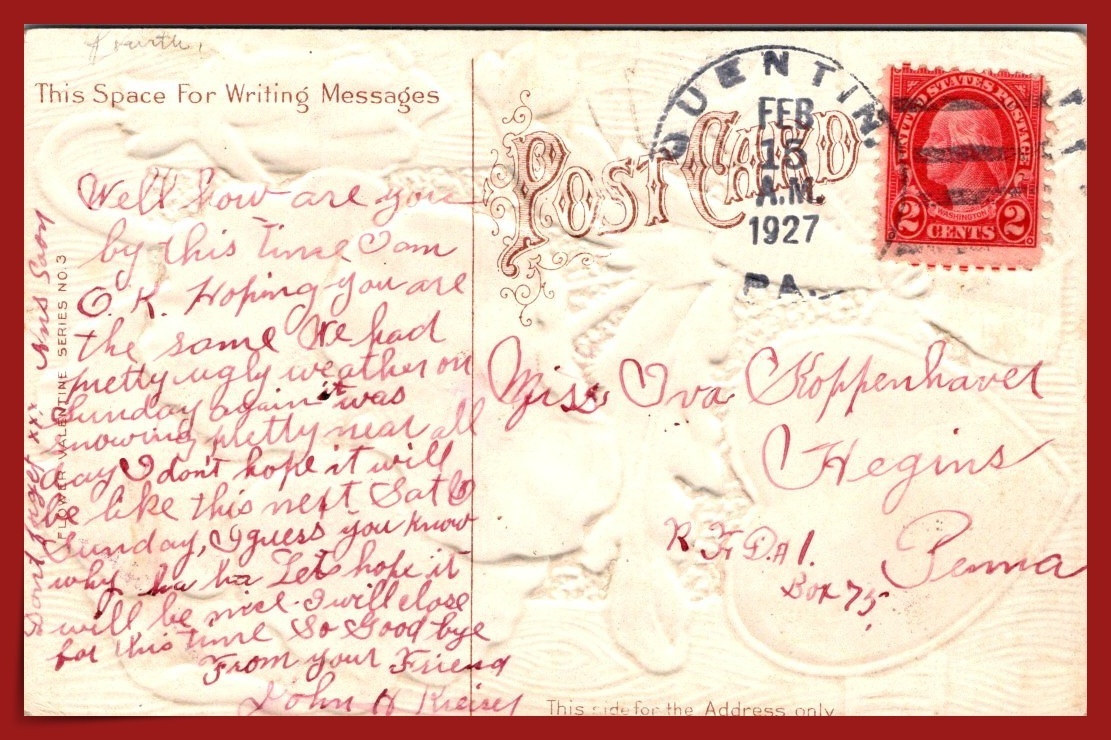 This Space For Writing Messages
Well how are you
by this time I am
O.K. Hoping you are
the same We had
pretty ugly weather on
Sunday again it was
snowing pretty near all
day I don't hope it will
be like this next Sat &
Sunday, I guess you know
why ha ha Lets hope it
will be nice. I will close
for this time So Good bye
From your Friend
John H
Dont forget xxx Ans Soon
FLOWER VALENTINE SERIES NO. 3
POST CARD
QUENTIN
FEB
15
A.M.
1927
PA.
UNITED STATES POSTAGE
WASHINGTON
2 CENTS 2
Miss Iva Koppenhaver
Hegins
R.F.D. # 1.
Penna
Box 75
This side for the Address only